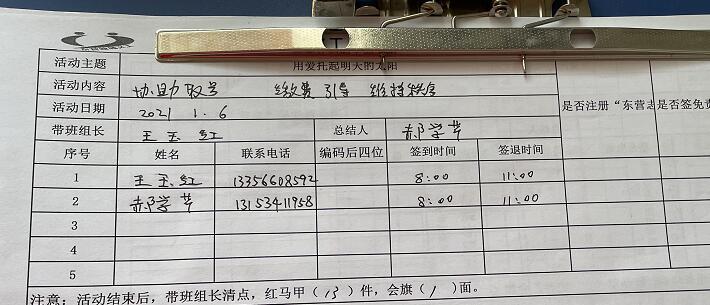 活动主题 用爱托起明天的太阳
活动内容 协助取号 缴费 引导 维持秩序
活动日期 2021 1.6
是否注册“东营志 是否签免责
带班组长 王玉红 总结人 郝学芹
序号 姓名 联系电话 编码后四位 签到时间 签退时间
1 王玉红 13356608592 8:00 11:00
2 郝学芹 13153411958 8:00 11:00
3
4
5
注意：活动结束后，带班组长清点，红马甲（13）件，会旗（1）面。